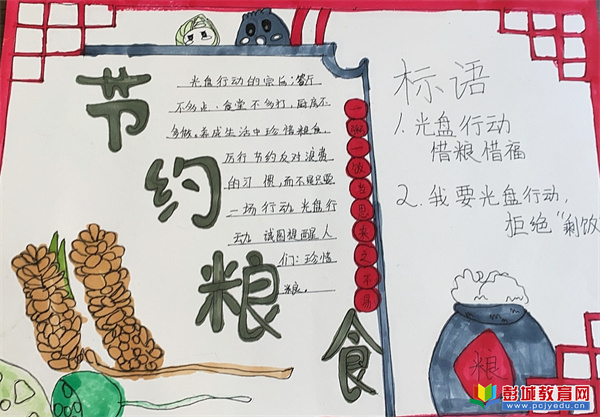 节约粮食
光盘行动的宗旨:餐厅
不多点、食堂不多打,厨房不
多做。养成生活中珍惜粮食,
厉行节约反对浪费
的习惯,而不是只要
一场行动。光盘行
动试图提醒人
们:珍惜
粮。
一粥一饭当思来之不易
标语
1.光盘行动
惜粮惜福
2.我要光盘行动,
拒绝“剩饭
粮
彭城教育网
www.pcjyedu.cn